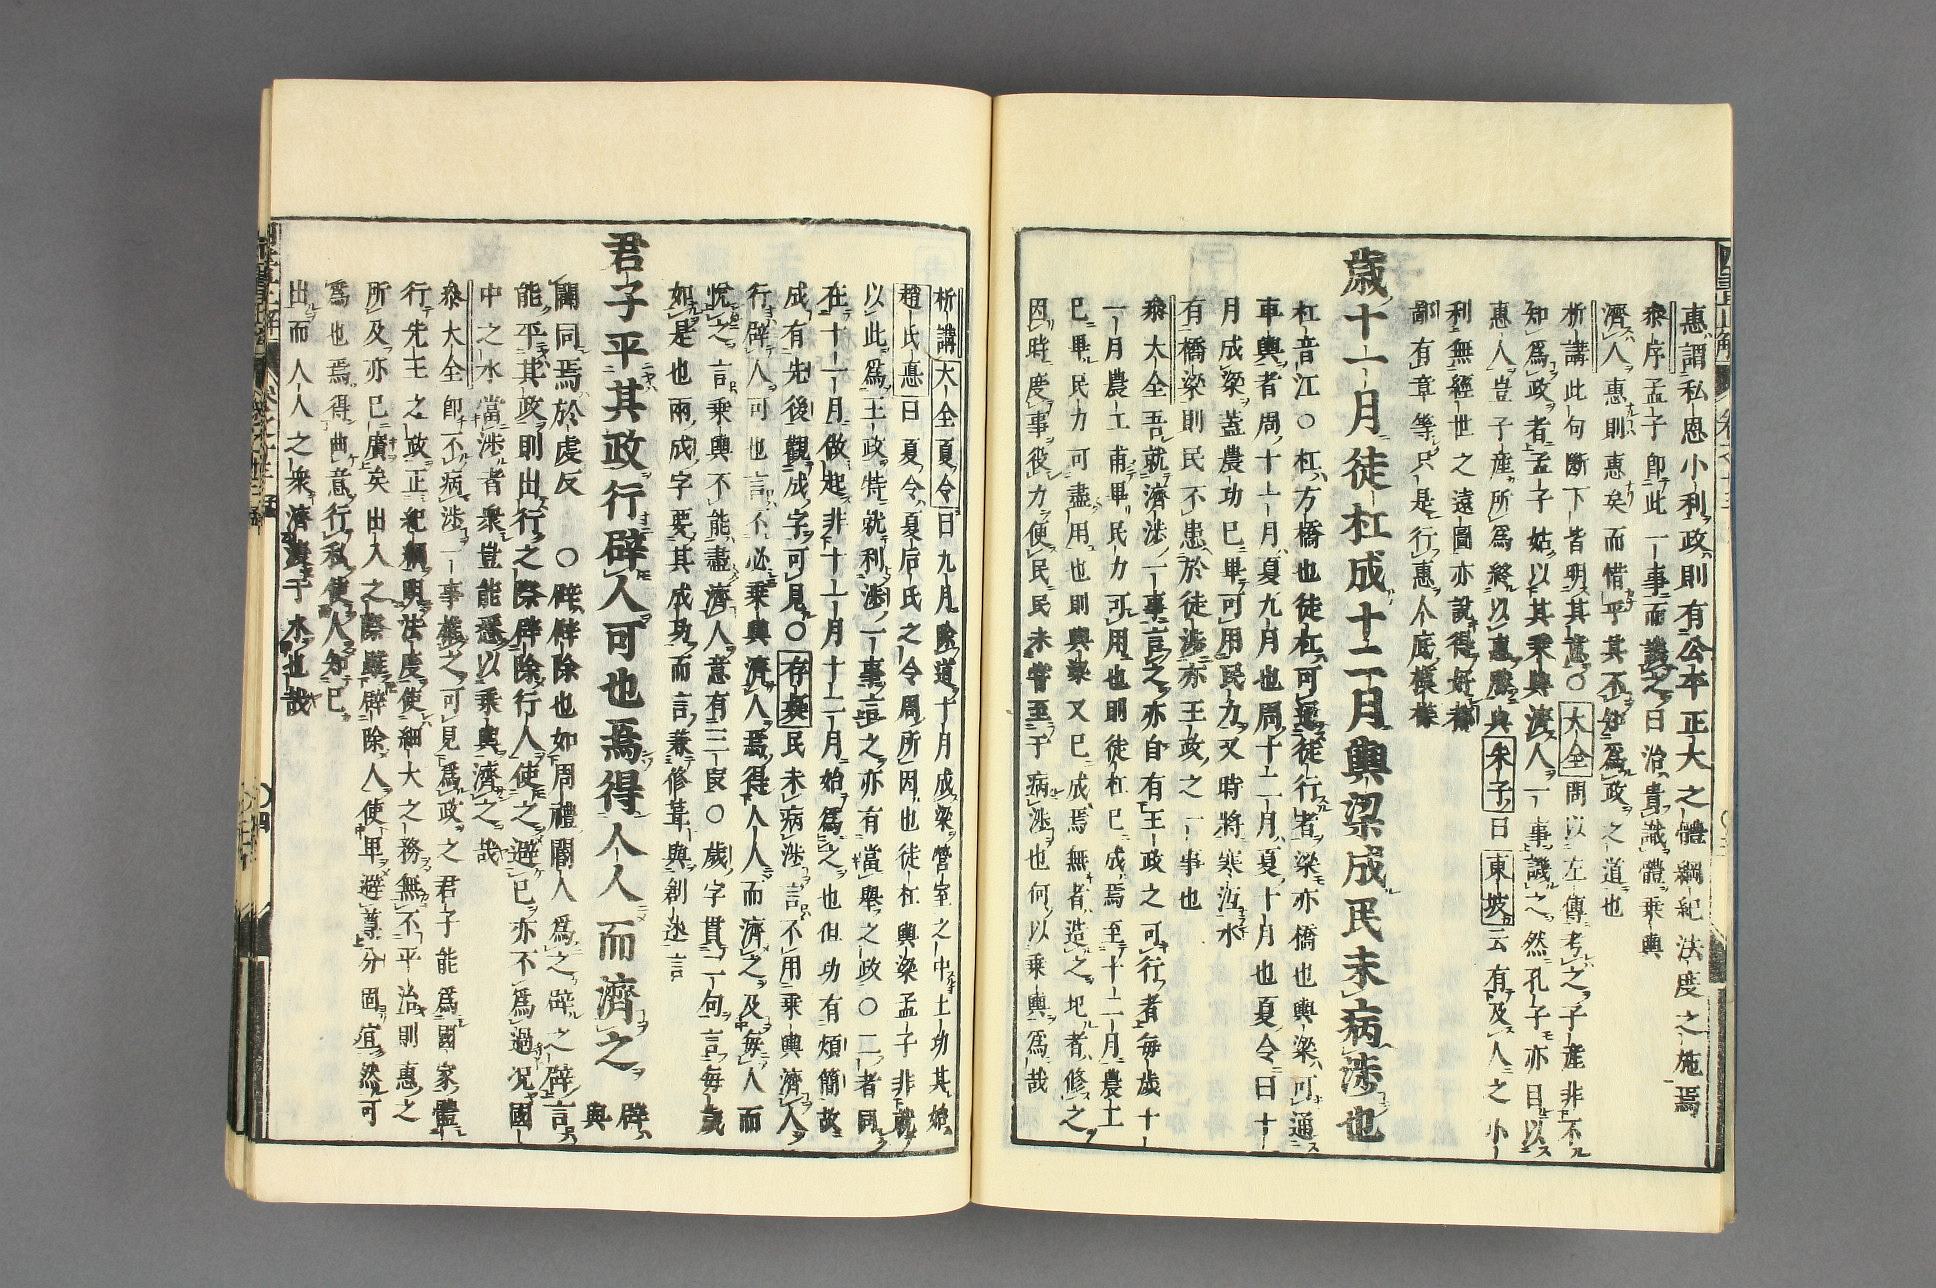 惠謂私恩小利政則有公平正大之體綱紀法度之施焉
叅序孟子卽此一事而譏之曰治貴識體乘輿
濟人惠則惠矣而惜乎其不知爲政之道也
析講此句斷下皆明其意○大全問以左傳考之子產非不
知爲政者孟子姑以其乘輿濟人一事譏之然孔子亦目以
惠人豈子產所爲終以惠勝與朱子曰東坡云有及人之小
利無經世之遠圖亦說得好都
鄙有章等只是行惠人底模樣
歲十一月徒杠成十二月輿梁成民未病涉也
杠音江○杠方橋也徒杠可通徒行者梁亦橋也輿梁可通
車輿者周十一月夏九月也周十二月夏十月也夏令曰十
月成梁蓋農功已畢可用民力又時將寒沍水
有橋梁則民不患於徒涉亦王政之一事也
叅大全吾就濟涉一事言之亦自有王政之可行者每歲十
一月農工甫畢民力可用也則徒杠已成焉至十二月農工
已畢民力可盡用也則輿梁又已成焉無者造之圯者修之
因時度事役力便民民未嘗至于病涉也何以乘輿爲哉
析講大全夏令曰九月除道十月成梁營室之中土功其始
趙氏悳曰夏令夏后氏之令周所因也徒杠輿梁孟子非
以此爲王政特就利涉一事言之亦有當舉之政○二者同
在十一月做起非十一月十二月始爲之也但功有煩簡故
成有先後觀成字可見○存疑民未病涉言不用乘輿濟人
行辟人可也言不必乘輿濟人焉得人人而濟之及每人而
悅之言乘輿不能盡濟人意有三層○歲字貫二句言每歲
如是也兩成字要其成功而言兼修葺與創造言
君子平其政行辟人可也焉得人人而濟之
辟與
闢同焉於虔反 ○辟辟除也如周禮閽人爲之辟之辟言
能平其政則出行之際辟除行人使之避已亦不爲過况國
中之水當涉者衆豈能悉以乘輿濟之哉
叅大全卽不病涉一事推之可見爲政之君子能爲國家體
行先王之政正紀綱明法度使細大之務無不平治則惠之
所及亦已廣矣出入之際雖辟除人使畢避尊分固宜然可
爲也焉得曲意行私使人知已
出而人人之衆濟于水也哉